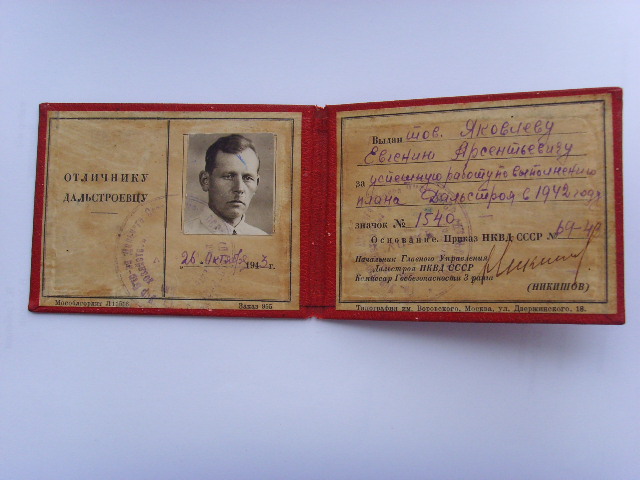 ОТЛИЧНИКУ
ДАЛЬСТРОЕВЦУ
„26 Октября 1943 г.
Мособлгорлит Заказ 965
Выдан тов. Яковлеву
Евгению Арсентьевичу
за успешную работу по выполнению
плана Дальстроя в 1942 году
значок № 1540.
Основание. Приказ НКВД СССР №
Начальник Главного Управления
Дальстроя НКВД СССР
Комиссар Госбезопасности 3 ранга
(НИКИШОВ)
Типография им. Воровского, Москва, ул. Дзержинского, 18.